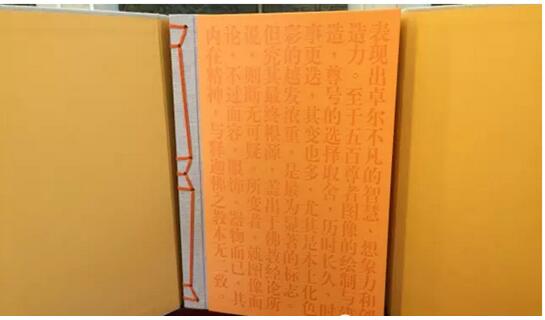 表现出卓尔不凡的智慧、想象力和
造力。至于五百尊者图像的绘制与
造，尊号的选择取舍，历时长久，时
事更迭，其变也多，尤其是本土化色
彩的越发浓重，是最为显著的标志。
但究其最终根源，盖出于佛教经论所
说，则断无可疑。所变者，就图像而
论，不过面容、服饰、器物而已，其
内在精神，与释迦佛之教本无二致。